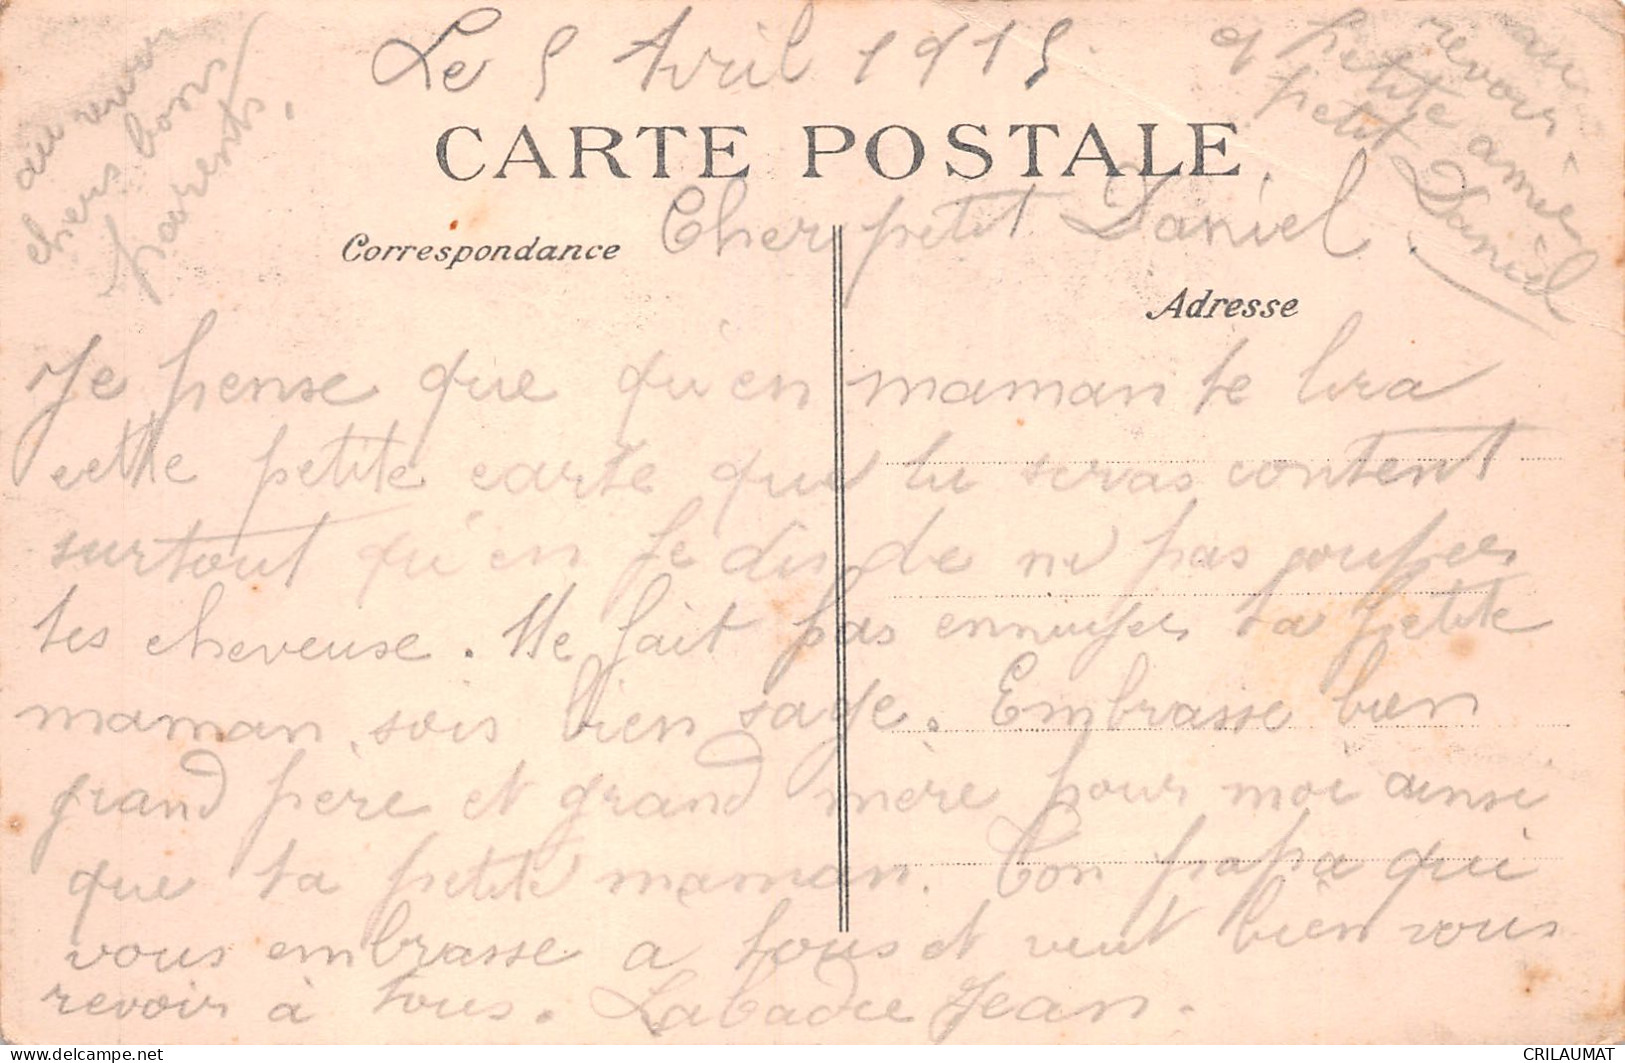 Le 5 Avril 1915
au revoir
chers bons
parents.
au
revoir
petite amie
petit Daniel
CARTE POSTALE
Cher petit Daniel.
Correspondance
Adresse
Je pense que qu'en maman te lira
cette petite carte que tu seras content
surtout qu'en Je dis de ne pas couper
tes cheveuse. Ne fait pas ennuyer ta petite
maman, sois bien sage. Embrasse bien
grand père et grand mère pour moi ainsi
que ta petite maman. Ton papa qui
vous embrasse a tous et veut bien vous
revoir à tous. Labadie Jean.
CRILAUMAT